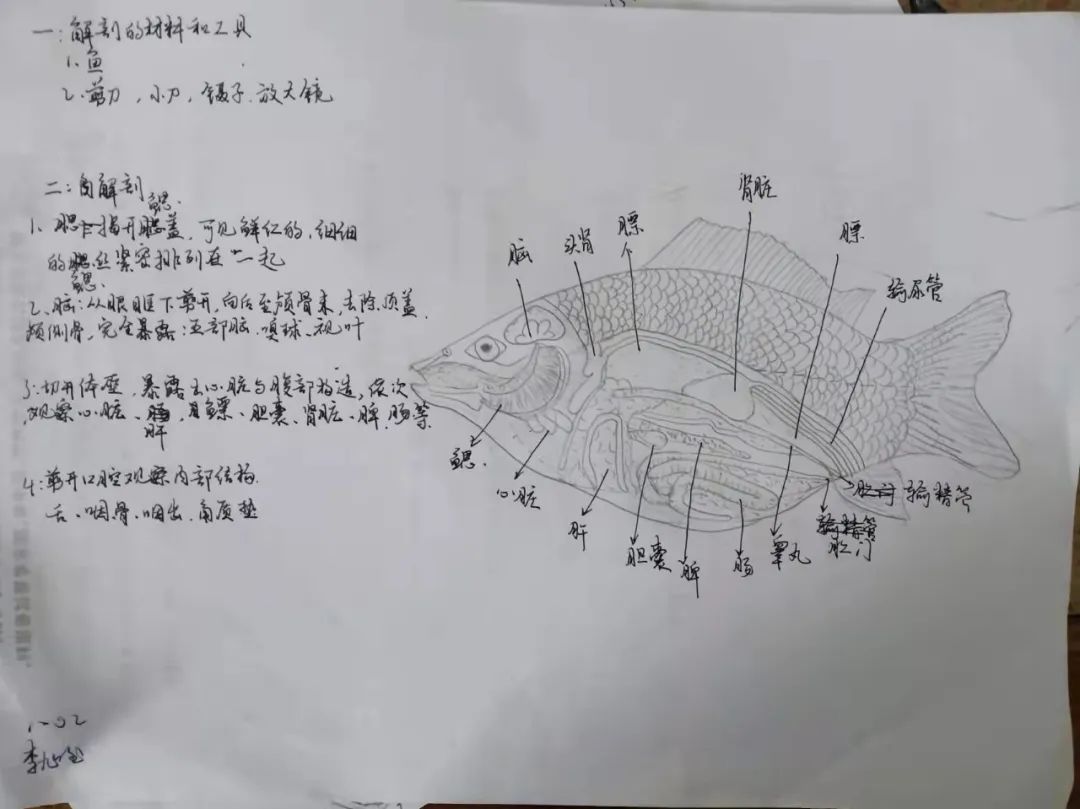 一:解剖的材料和工具
1.鱼
2.剪刀,小刀,镊子.放大镜
二:鱼解剖
1、鳃:揭开鳃盖,可见鲜红的,细细
的鳃丝紧密排列在一起
2、脑:从眼眶下剪开,向后至颅骨末,去除顶盖
颅侧骨,完全暴露:五部脑、嗅球、视叶
3:切开体壁,暴露出心脏与腹部构造,依次
观察心脏、肝,鱼鳔、胆囊、肾脏、脾、肠等
4:剪开口腔观察内部结构.
舌、咽骨、咽齿、角质垫
肾脏
脑
头肾
鳔
鳔
输尿管
鳃.
心脏
肝
胆囊
脾
肠
睾丸
肛门
输精管
1-02